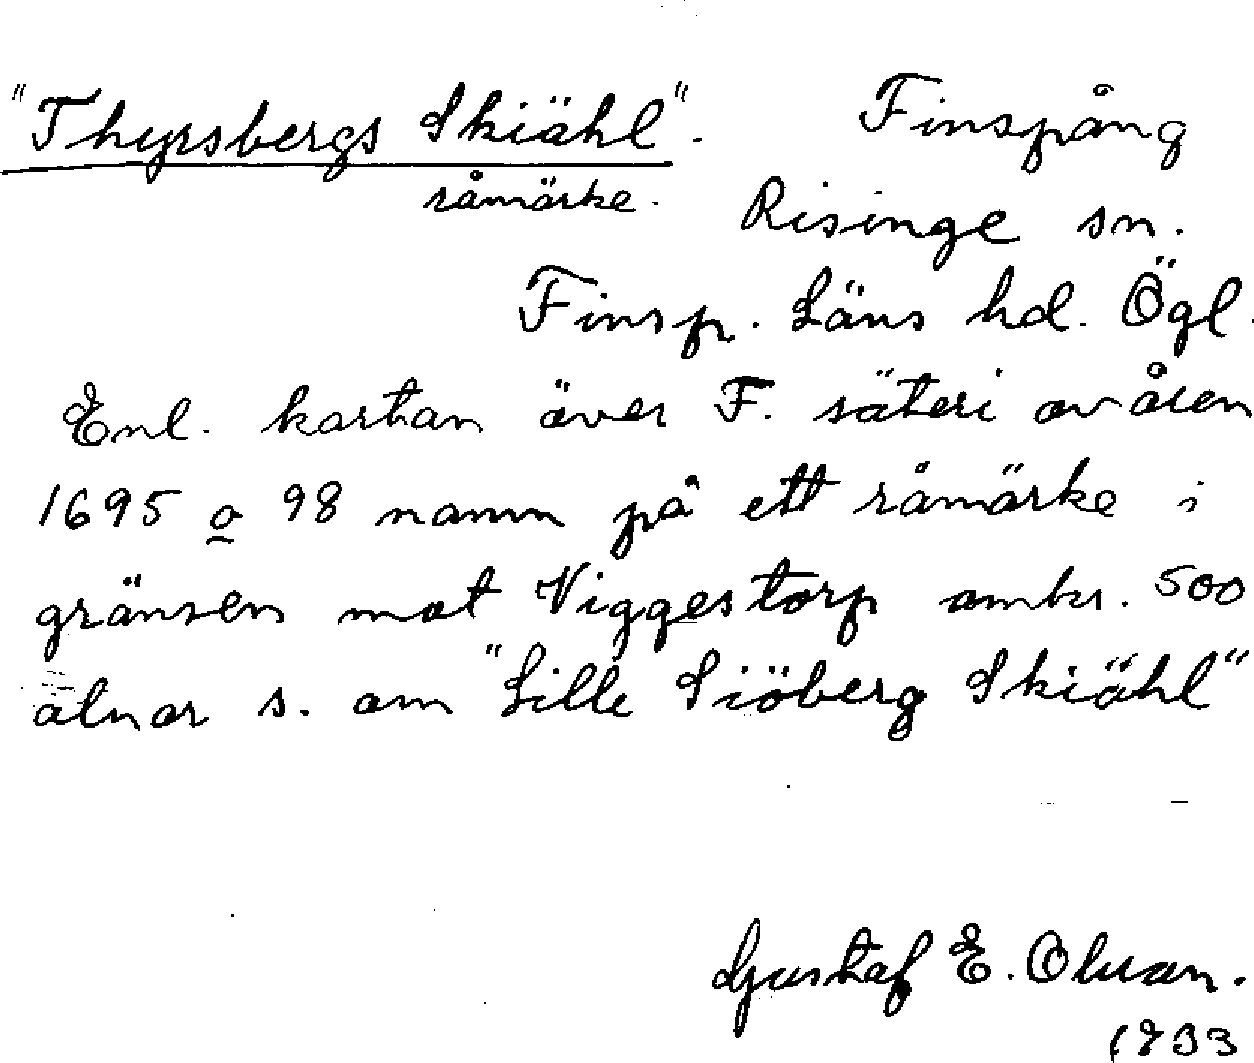 "Thyrsbergs Skiähl".
råmärke.
Finspång
Risinge sn.
Finsp. Läns hd. Ögl.
Enl. kartan över F. säteri av åren
1695 o 98 namn på ett råmärke i
gränsen mot Viggestorp omkr. 500
alnar s. om "Lille Siöberg Skiähl"
Gustaf E. Olsson.
1933